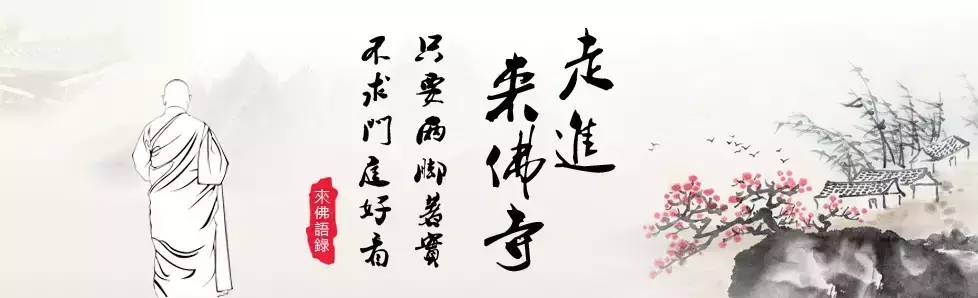 走進
來佛寺
只要兩脚著實
不求門庭好看
來佛語錄